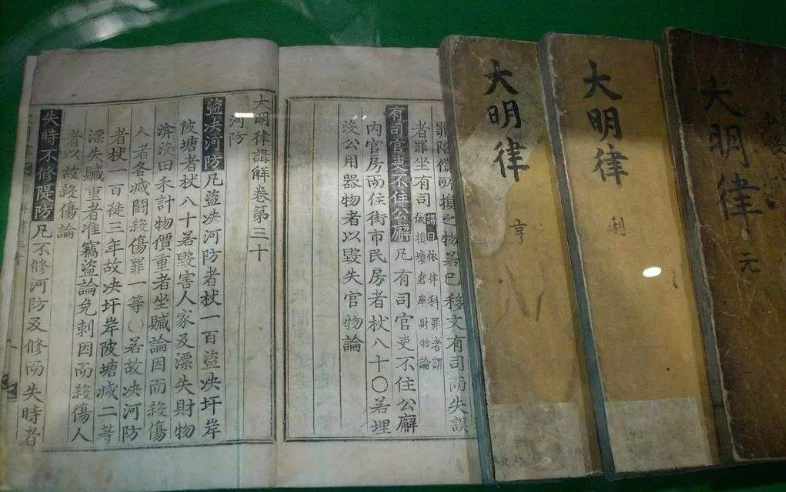 大明律 元
大明律 利
大明律 亨
罪陪償所損之物若已移文有司而失誤
者罪坐有司 講曰依律科罪者謂依損壞倉庫財物論
有司官吏不住公廨 凡有司官吏不住公廨
內官房而住街市民房者杖八十〇若埋
沒公用器物者以毀失官物論
大明律講解卷第三十
河防
盜决河防 凡盜决河防者杖一百盜决圩岸
陂塘者杖八十若毀害人家及漂失財物
渰沒田禾計物價重者坐贓論因而殺傷
人者各减鬪殺傷罪一等〇若故决河防
者杖一百徒三年故决圩岸陂塘减二等
漂失贓重者准竊盜論免刺因而殺傷人
者以故殺傷論
失時不修隄防 凡不修河防及修而失時者